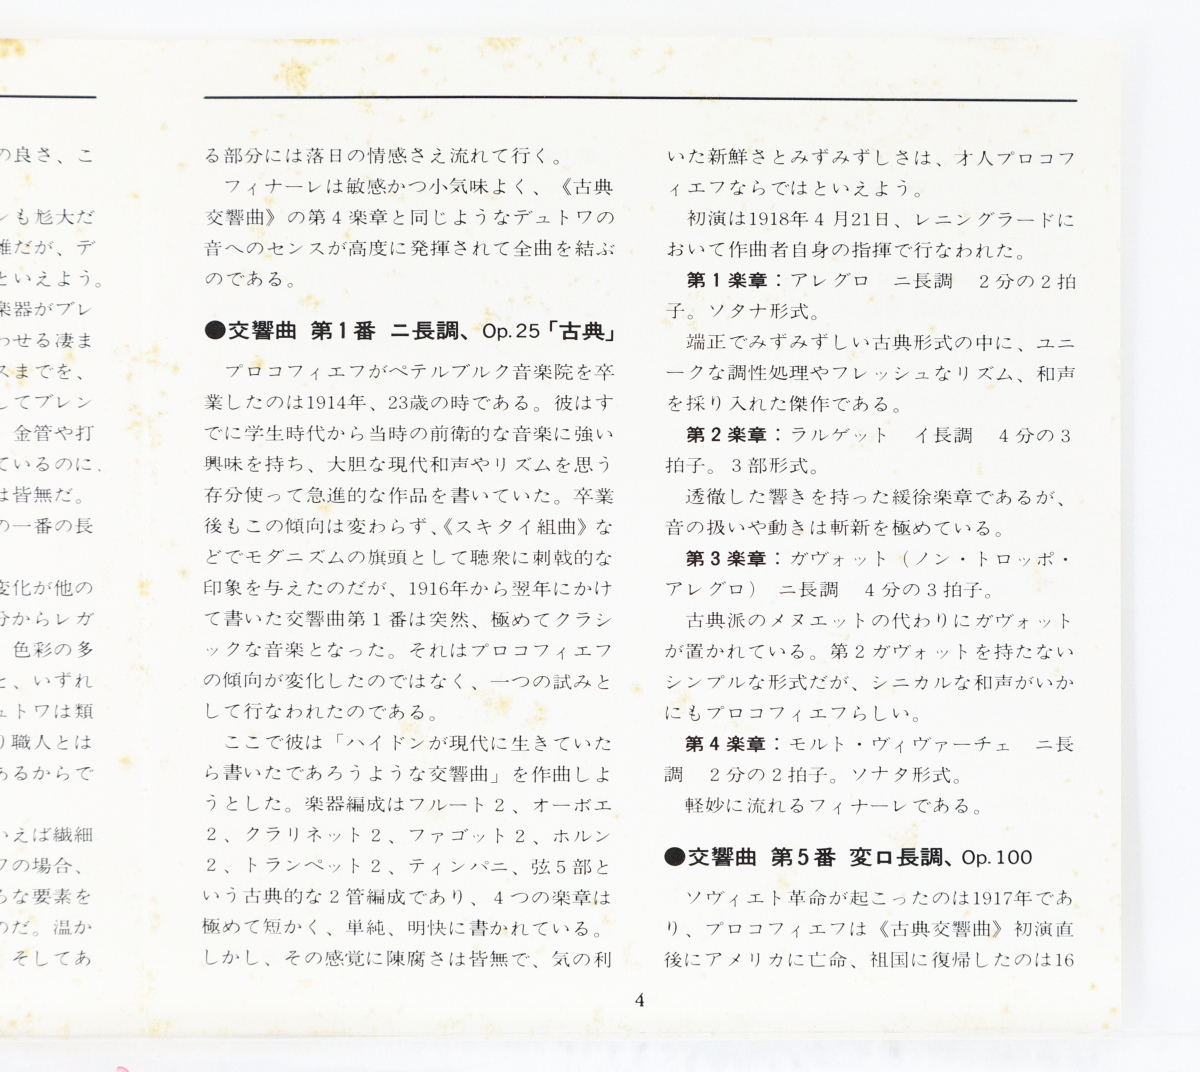 の良さ、こ
ンも尨大だ
誰だが、デ
といえよう。
楽器がブレ
わせる凄ま
スまでを、
してブレン
金管や打
ているのに、
は皆無だ。
の一番の長
変化が他の
分からレガ
色彩の多
と、いずれ
ュトワは類
り職人とは
あるからで
いえば繊細
ワの場合、
ろな要素を
のだ。温か
そしてあ
る部分には落日の情感さえ流れて行く。
フィナーレは敏感かつ小気味よく、《古典
交響曲》の第4楽章と同じようなデュトワの
音へのセンスが高度に発揮されて全曲を結ぶ
のである。
●交響曲 第1番 ニ長調、Op.25「古典」
プロコフィエフがペテルブルク音楽院を卒
業したのは1914年、23歳の時である。彼はす
でに学生時代から当時の前衛的な音楽に強い
興味を持ち、大胆な現代和声やリズムを思う
存分使って急進的な作品を書いていた。卒業
後もこの傾向は変わらず、《スキタイ組曲》な
どでモダニズムの旗頭として聴衆に刺戟的な
印象を与えたのだが、1916年から翌年にかけ
て書いた交響曲第1番は突然、極めてクラシ
ックな音楽となった。それはプロコフィエフ
の傾向が変化したのではなく、一つの試みと
して行なわれたのである。
ここで彼は「ハイドンが現代に生きていた
ら書いたであろうような交響曲」を作曲しよ
うとした。楽器編成はフルート2、オーボエ
2、クラリネット2、ファゴット2、ホルン
2、トランペット2、ティンパニ、弦5部と
いう古典的な2管編成であり、4つの楽章は
極めて短かく、単純、明快に書かれている。
しかし、その感覚に陳腐さは皆無で、気の利
いた新鮮さとみずみずしさは、才人プロコフ
ィエフならではといえよう。
初演は1918年4月21日、レニングラードに
おいて作曲者自身の指揮で行なわれた。
第1楽章：アレグロ ニ長調 2分の2拍
子。ソタナ形式。
端正でみずみずしい古典形式の中に、ユニ
ークな調性処理やフレッシュなリズム、和声
を採り入れた傑作である。
第2楽章：ラルゲット イ長調 4分の3
拍子。3部形式。
透徹した響きを持った緩徐楽章であるが、
音の扱いや動きは斬新を極めている。
第3楽章：ガヴォット（ノン・トロッポ・
アレグロ） ニ長調 4分の3拍子。
古典派のメヌエットの代わりにガヴォット
が置かれている。第2ガヴォットを持たない
シンプルな形式だが、シニカルな和声がいか
にもプロコフィエフらしい。
第4楽章：モルト・ヴィヴァーチェ ニ長
調 2分の2拍子。ソナタ形式。
軽妙に流れるフィナーレである。
●交響曲 第5番 変ロ長調、Op.100
ソヴィエト革命が起こったのは1917年であ
り、プロコフィエフは《古典交響曲》初演直
後にアメリカに亡命、祖国に復帰したのは16
4